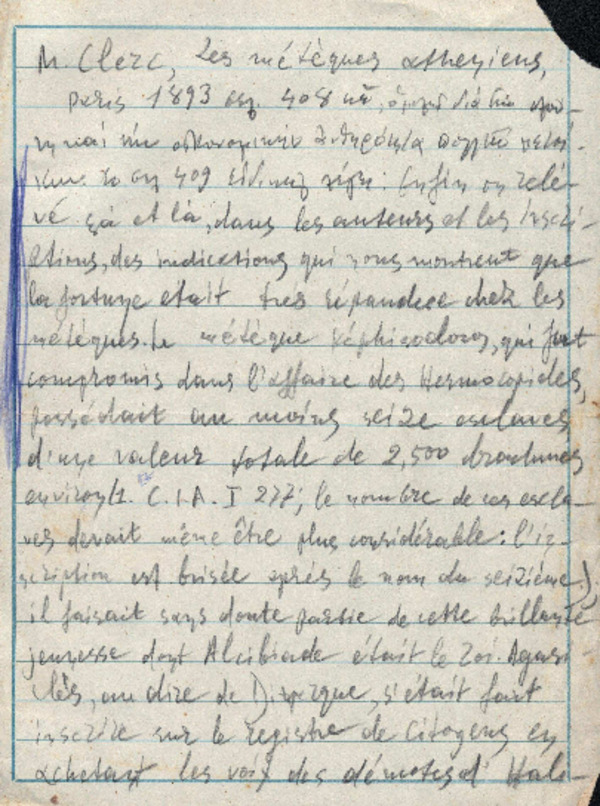 M. Clerc, Les métèques athéniens,
Paris 1893 σελ. 408 κἑ, ὁμιλεῖ διὰ τὴν
καὶ τὴν οἰκονομικὴν
τὸ σελ 409 εἰδικῶς λέγει: Enfin on relé-
ve çà et là, dans les auteurs et les inscri-
ptions, des indications qui nous montrent que
la fortune etait tres répandue chez les
métèques. Le métèque Képhisodoros, qui fut
compromis dans l'affaire des Hermocopides,
possédait au moins seize esclaves
d'une valeur totale de 2,500 drachmes
environ (1. C.I.A. I 277; le nombre de ces escla-
ves devait même être plus considérable: l'in-
scription est brisée après le nom du seizième),
il faisait sans doute partie de cette brillante
jeunesse dont Alcibiade était le roi. Agasi-
clès, au dire de Dinarque, s'était fait
inscrire sur le registre de Citoyens en
achetant les voix des démotes d' Hali-